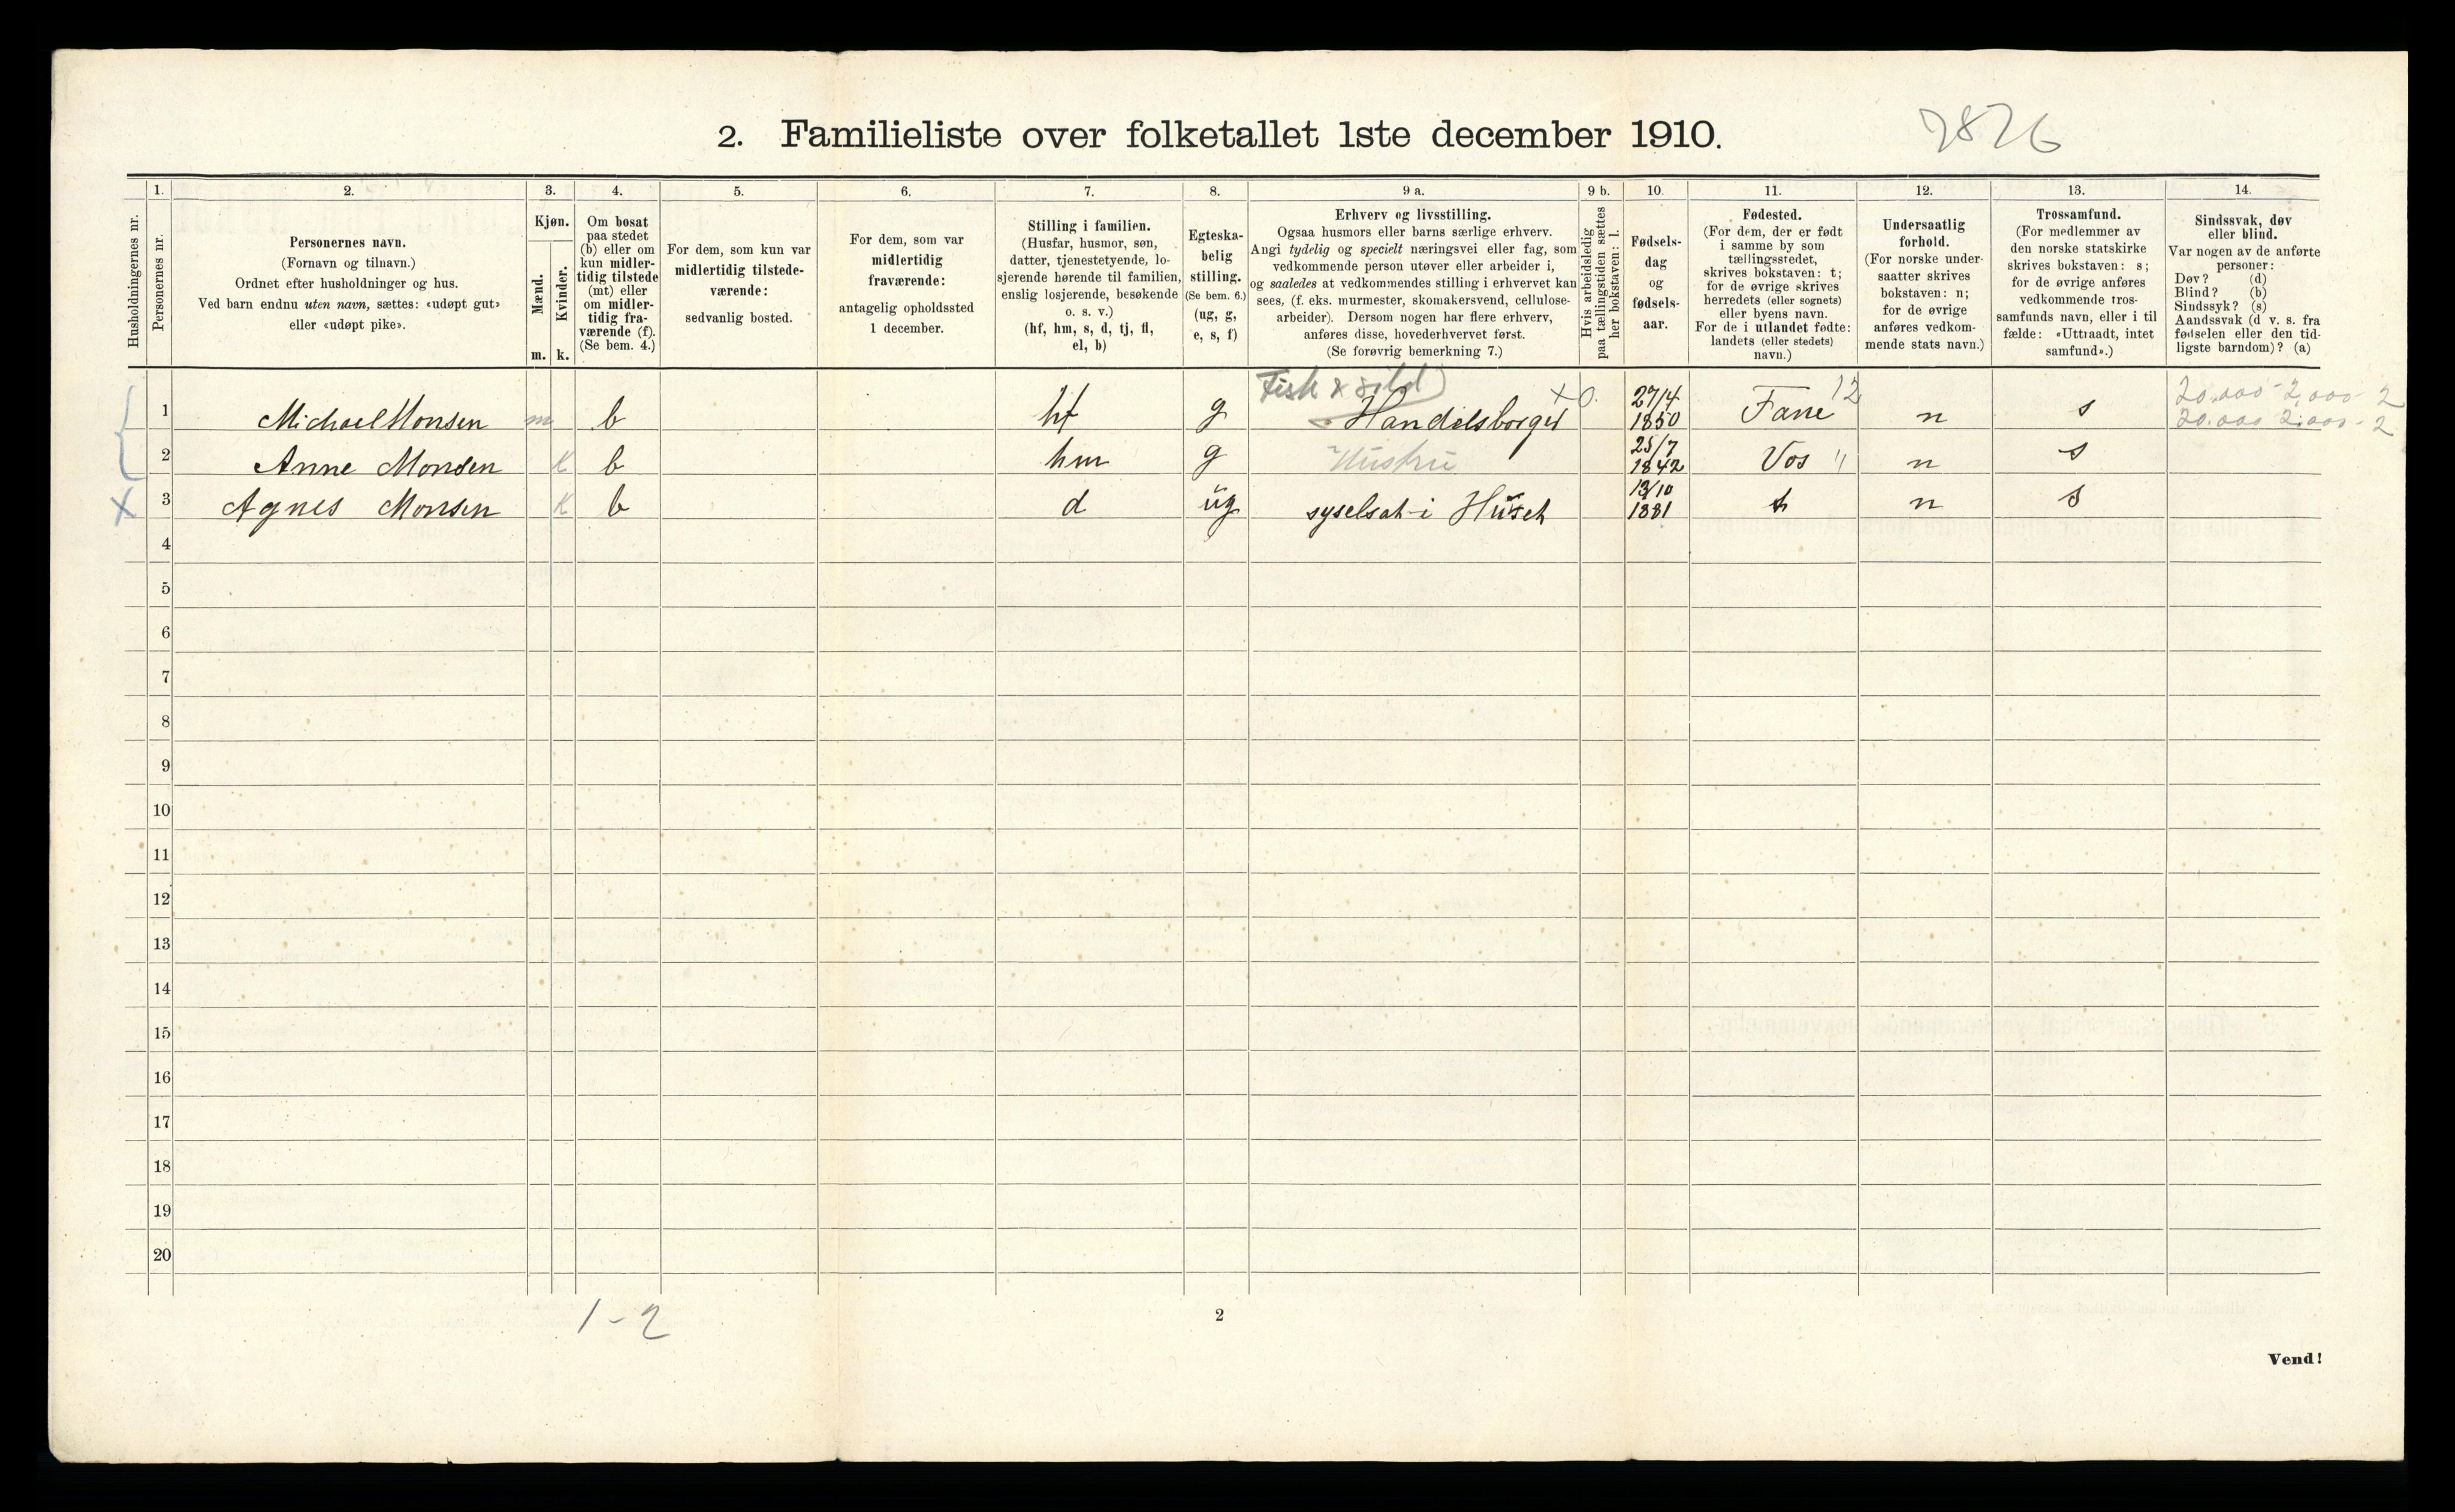 2. Familieliste over folketallet 1ste december 1910.
7826
Husholdningernes nr.
1.
Personernes nr.
2.
Personernes navn.
(Fornavn og tilnavn.)
Ordnet efter husholdninger og hus.
Ved barn endnu uten navn, sættes: «udøpt gut»
eller «udøpt pike».
3.
Kjøn.
Mænd.
Kvinder.
m. k.
4.
Om bosat
paa stedet
(b) eller om
kun midler-
tidig tilstede
(mt) eller
om midler-
tidig fra-
værende (f).
(Se bem. 4.)
5.
For dem, som kun var
midlertidig tilstede-
værende:
sedvanlig bosted.
6.
For dem, som var
midlertidig
fraværende:
antagelig opholdssted
1 december.
7.
Stilling i familien.
(Husfar, husmor, søn,
datter, tjenestetyende, lo-
sjerende hørende til familien,
enslig losjerende, besøkende
o. s. v.)
(hf, hm, s, d, tj, fl,
el, b)
8.
Egteska-
belig
stilling.
(Se bem. 6.)
(ug, g,
e, s, f)
9 a.
Erhverv og livsstilling.
Ogsaa husmors eller barns særlige erhverv.
Angi tydelig og specielt næringsvei eller fag, som
vedkommende person utøver eller arbeider i,
og saaledes at vedkommendes stilling i erhvervet kan
sees, (f. eks. murmester, skomakersvend, cellulose-
arbeider). Dersom nogen har flere erhverv,
anføres disse, hovederhvervet først.
(Se forøvrig bemerkning 7.)
9 b.
Hvis arbeidsledig
paa tællingstiden sættes
her bokstaven: l.
10.
Fødsels-
dag
og
fødsels-
aar.
11.
Fødested.
(For dem, der er født
i samme by som
tællingsstedet,
skrives bokstaven: t;
for de øvrige skrives
herredets (eller sognets)
eller byens navn.
For de i utlandet fødte:
landets (eller stedets)
navn.)
12.
Undersaatlig
forhold.
(For norske under-
saatter skrives
bokstaven: n;
for de øvrige
anføres vedkom-
mende stats navn.)
13.
Trossamfund.
(For medlemmer av
den norske statskirke
skrives bokstaven: s;
for de øvrige anføres
vedkommende tros-
samfunds navn, eller i til
fælde: «Uttraadt, intet
samfund».)
14.
Sindssvak, døv
eller blind.
Var nogen av de anførte
personer:
Døv? (d)
Blind? (b)
Sindssyk? (s)
Aandssvak (d v. s. fra
fødselen eller den tid-
ligste barndom)? (a)
Fisk & sild
1 Michael Monsen m b hf g Handelsborger x 0. 27/4 1850 Fane 12 n s 20.000-2,000-2
20.000 2.000-2
2 Anne Monsen k b hm g Hustru 25/7 1842 Vos " n s
x 3 Agnes Monsen k b d ug syselsat i Huset 13/10 1881 t n s
4
5
6
7
8
9
10
11
12
13
14
15
16
17
18
19
20
1-2
2
Vend!